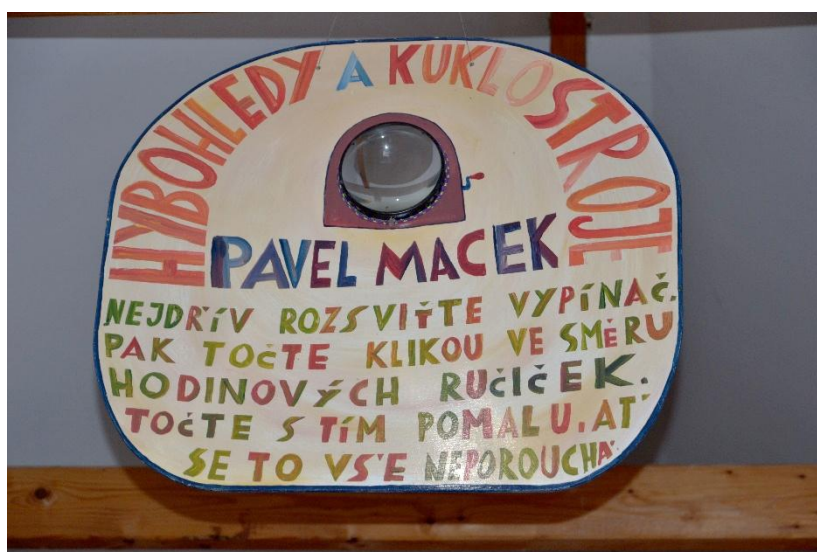 HYBOHLEDY A KUKLOSTROJE
PAVEL MACEK
NEJDŘÍV ROZSVIŤTE VYPÍNAČ.
PAK TOČTE KLIKOU VE SMĚRU
HODINOVÝCH RUČIČEK.
TOČTE S TÍM POMALU, AŤ
SE TO VŠE NEPOROUCHÁ.